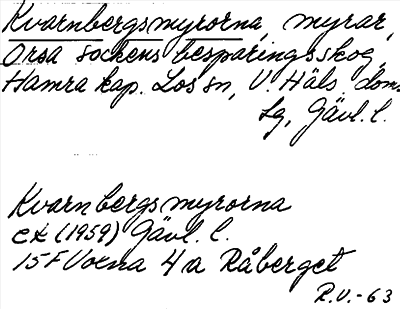 Kvarnbergsmyrorna, myrar,
Orsa sockens besparingsskog,
Hamra kap. Los sn, V. Häls. doms.
Lg, Gävl. l.
Kvarnbergsmyrorna
ek (1959) Gävl. l.
15F Voxna 4a Råberget
R.V.-63